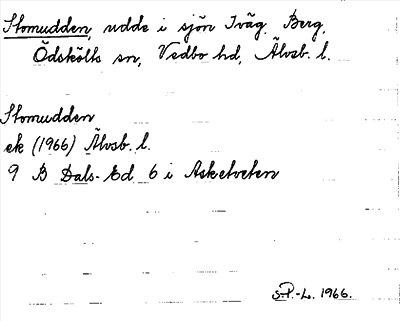 Stomudden, udde i sjön Iväg. Berg,
Ödskölts sn, Vedbo hd, Älvsb. l.
Stomudden
ek (1966) Älvsb. l.
9 B Dals-Ed 6 i Asketveten
S.P.-L. 1966.